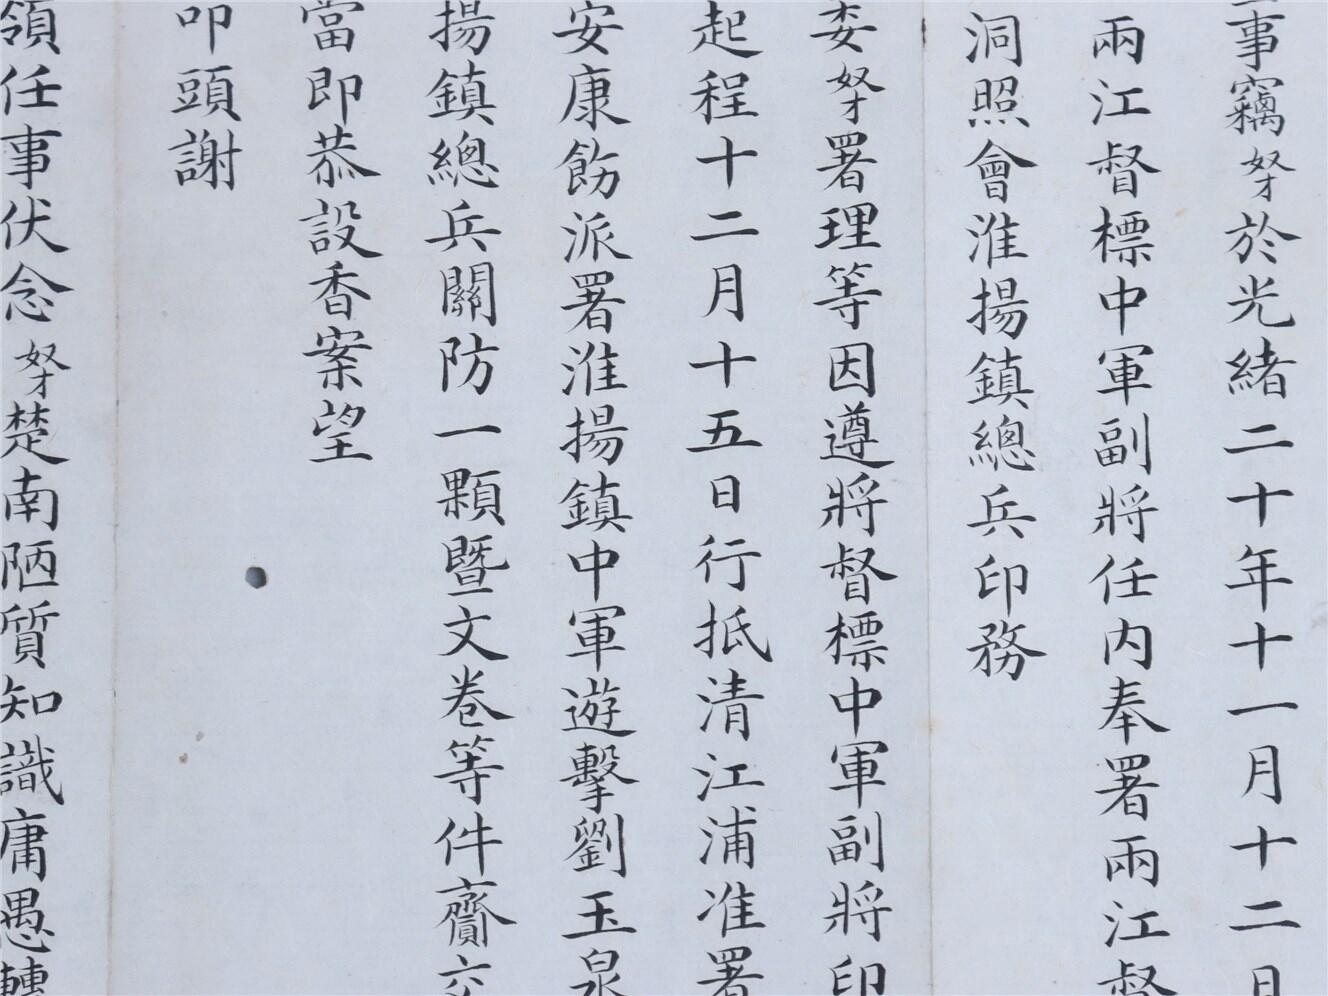 事竊奴才於光緒二十年十一月十二日
兩江督標中軍副將任内奉署兩江督
洞照會淮揚鎮總兵印務
委奴才署理等因遵將督標中軍副將印
起程十二月十五日行抵清江浦准署
安康飭派署淮揚鎮中軍遊擊劉玉泉
揚鎮總兵關防一顆暨文卷等件齎交
當即恭設香案望
叩頭謝
領任事伏念奴才楚南陋質知識庸愚轉